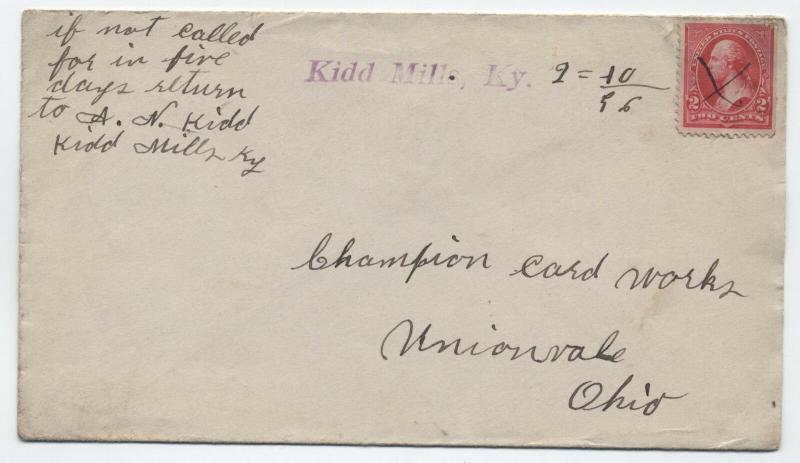 if not called
for in five
days return
to A. N. Kidd
Kidd Mills Ky
Kidd Mills, Ky. 2 = 10
96
2 TWO CENTS 2
Champion Card Works
Unionvale
Ohio